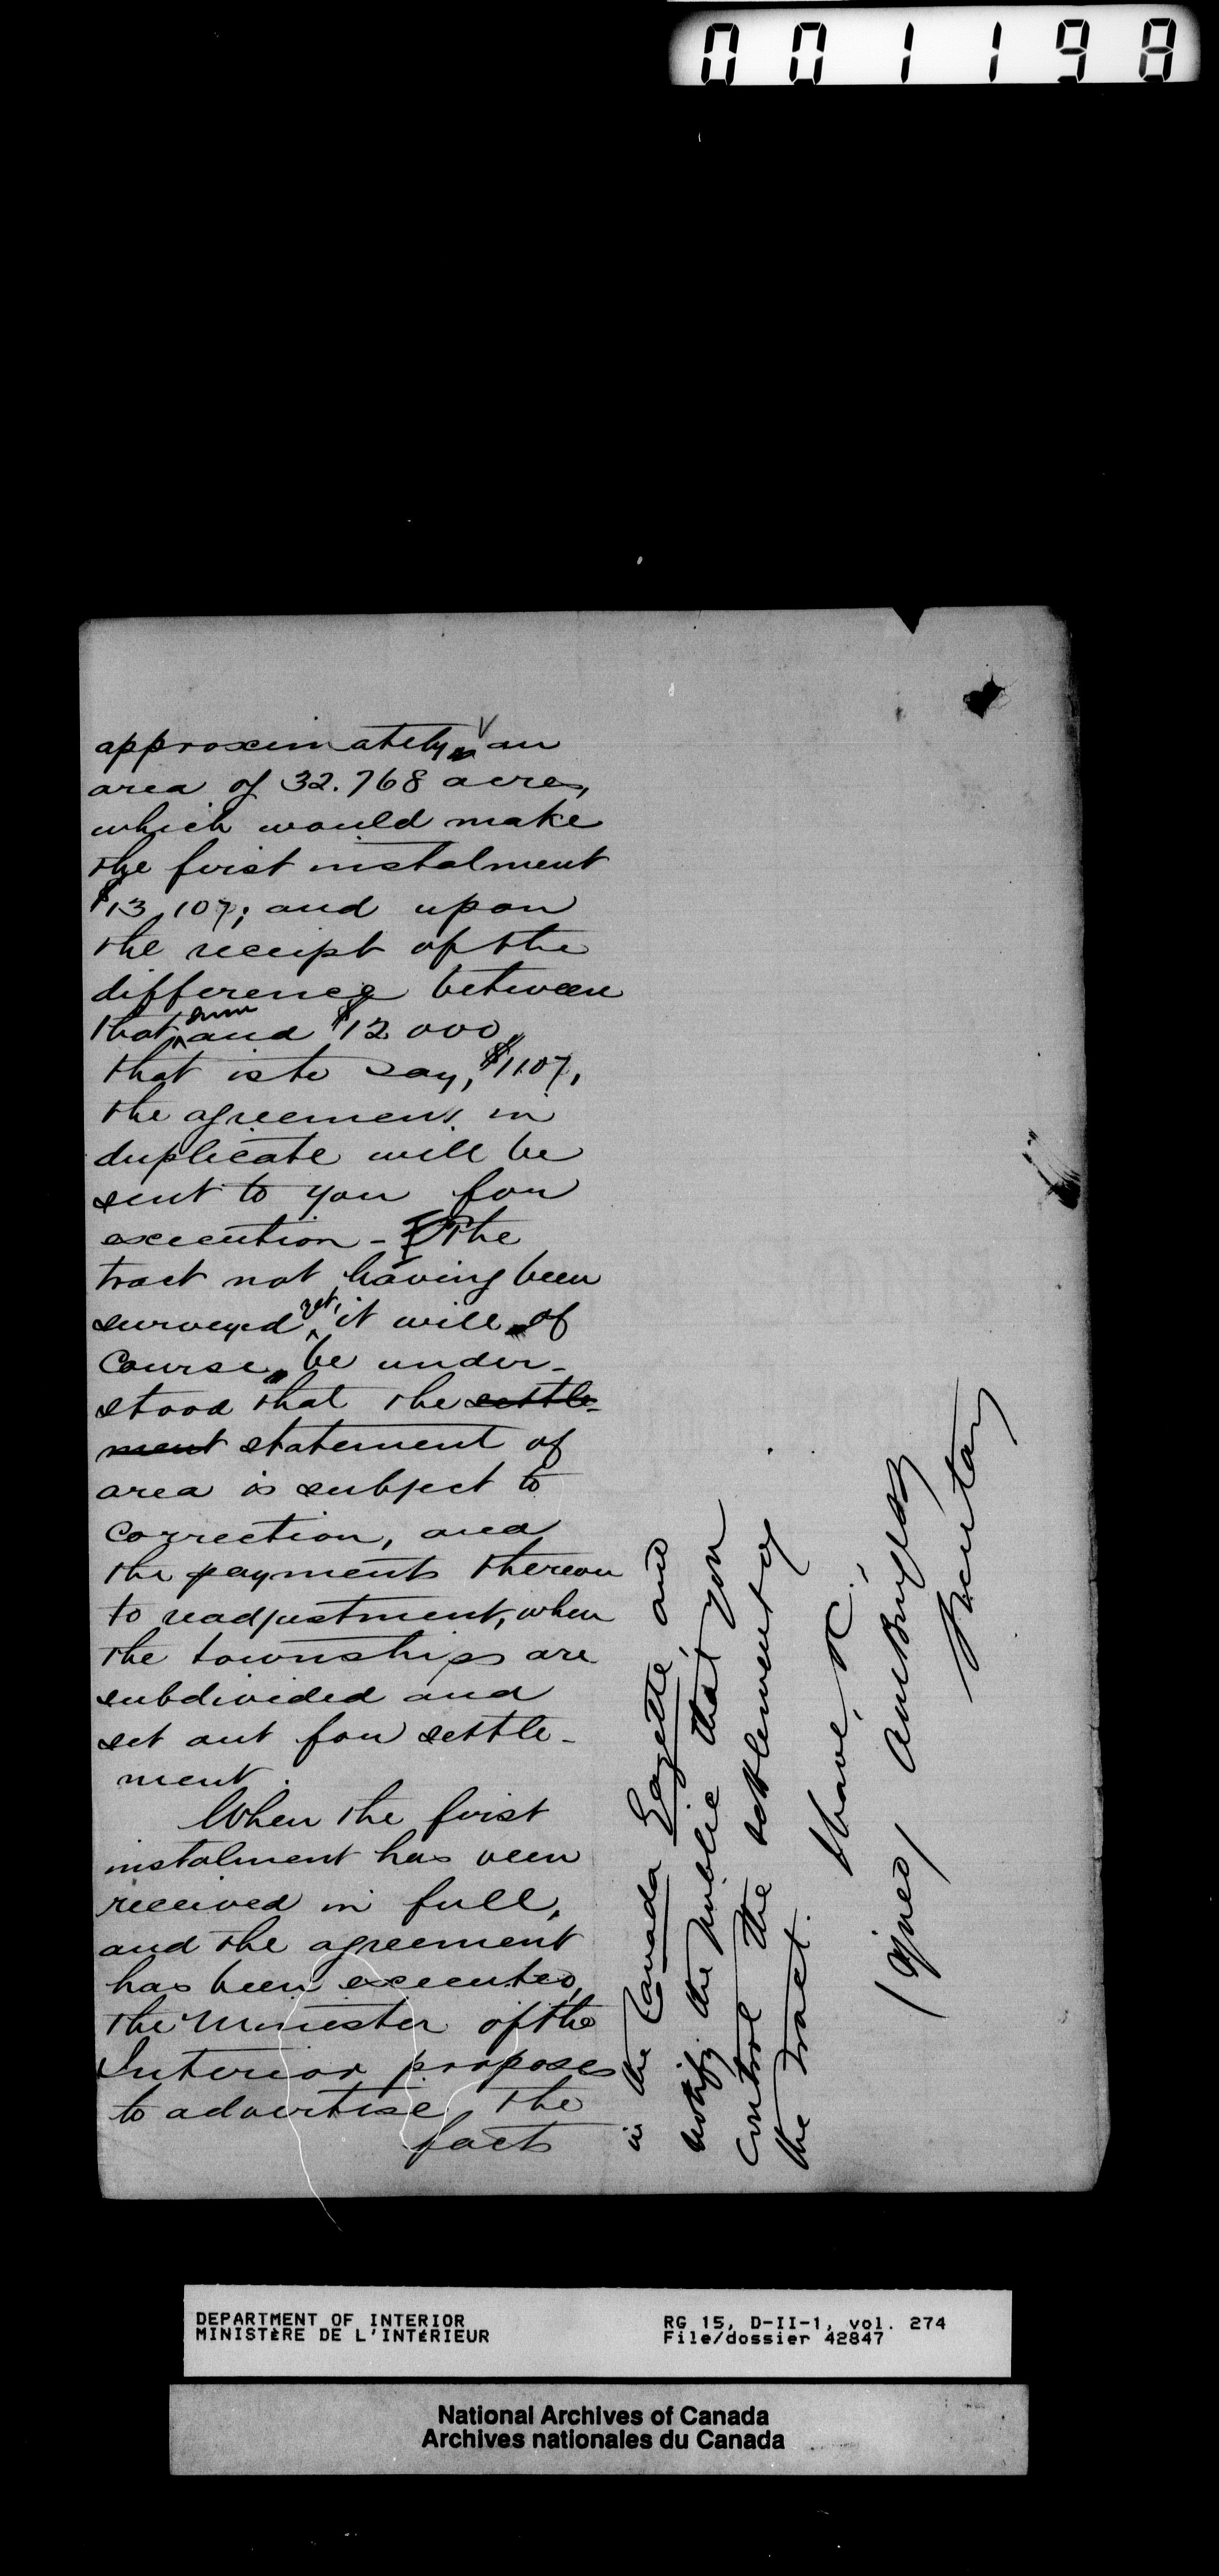 001198
approximately, an
area of 32.768 acres,
which would make
the first instalment
$13,107; and upon
the receipt of the
difference between
that sum and $12 000
that is to say, $1107,
the agreement in
duplicate will be
sent to you for
execution - The
tract not having been
surveyed yet, it will of
Course, be under-
stood that the settle-
ment statement of
area is subject to
Correction, and
the payments thereon
to readjustment, when
the townships are
subdivided and
set out for settle-
ment.
When the first
instalment has been
received in full,
and the agreement
has been executed,
the Minister of the
Interior proposes
to advertise the
fact
in the Canada Gazette, and
notify the public that you
control the settlement of
the tract.
I have, &c.,
(Signed) A M Burgess
Secretary
DEPARTMENT OF INTERIOR
MINISTÈRE DE L'INTÉRIEUR
RG 15, D-II-1, vol. 274
File/dossier 42847
National Archives of Canada
Archives nationales du Canada